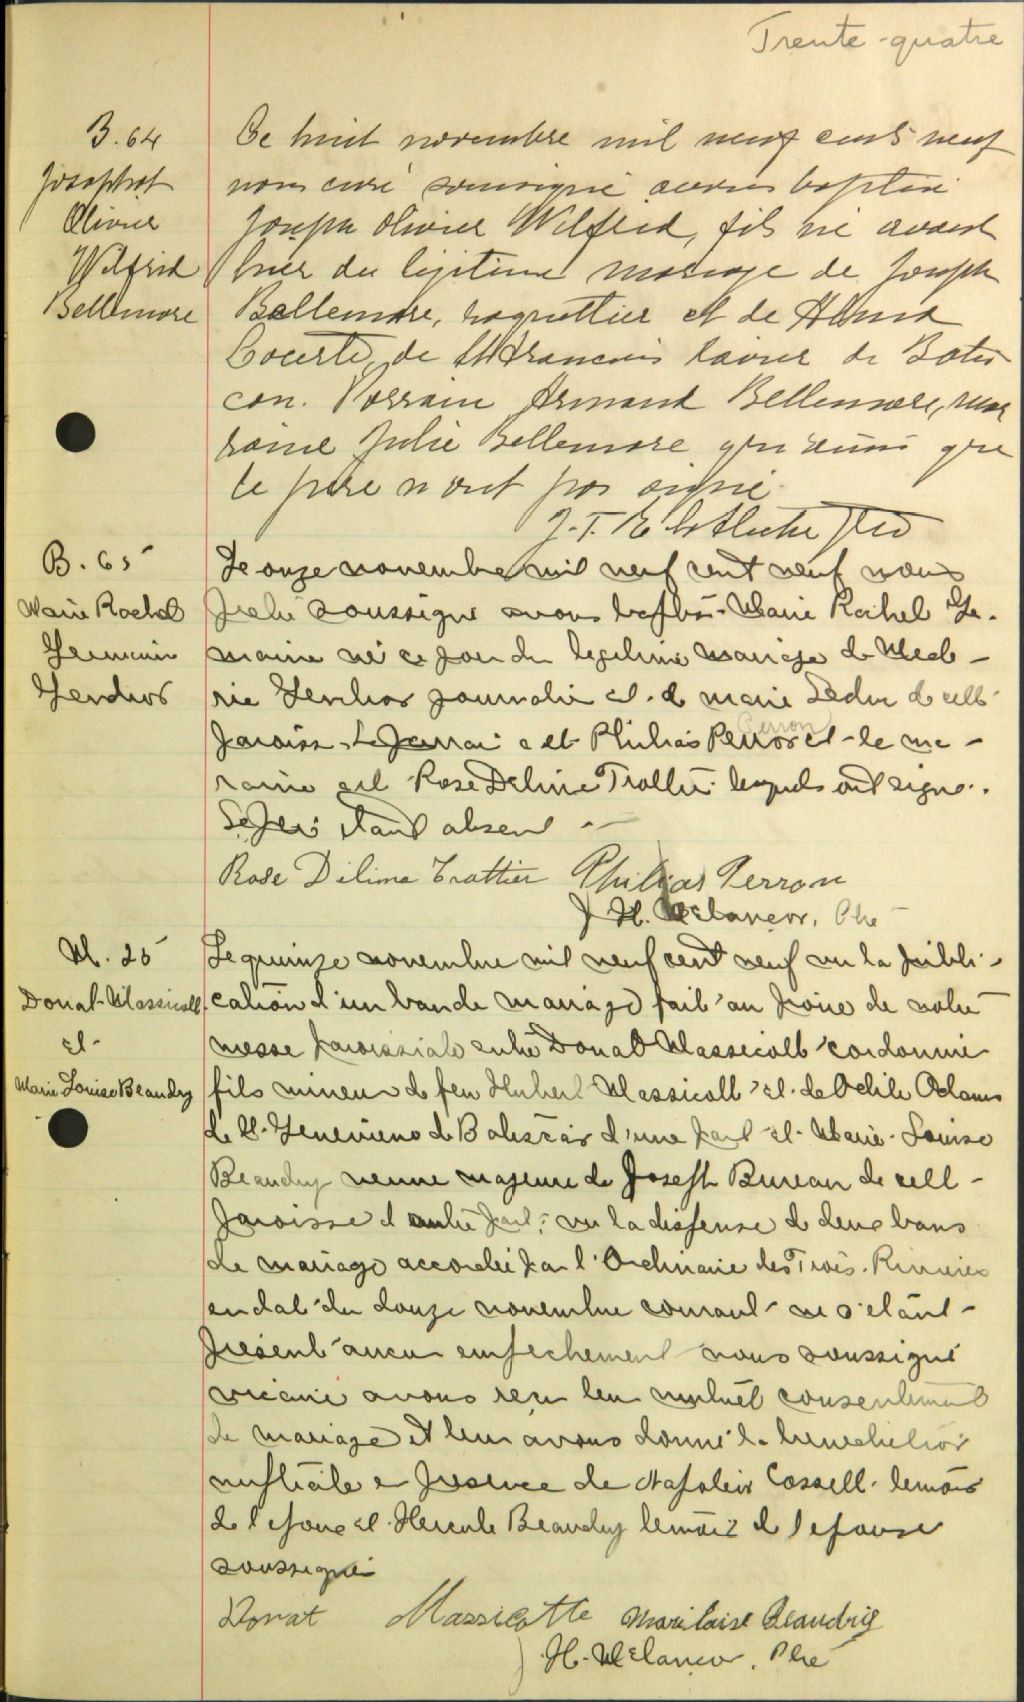 Trente-quatre
B. 64
Josaphat
Olivier
Wilfrid
Bellemare
Ce huit novembre mil neuf cent neuf
nous curé soussigné avons baptisé
Joseph Olivier Wilfrid, fils né avant
hier du légitime mariage de Joseph
Bellemare, et de
de St François Xavier de Batis
can. Parrain Armand Bellemare, mar
raine Julie Bellemare qui ainsi que
le père n'ont pas signé.
B. 65
Marie Rachel
Germain
Le onze novembre mil neuf cent neuf nous
Prêtre soussigné avons baptisé Marie Rachel Ger
maine né ce jour du légitime mariage de Méde-
rie journalier et de Marie Leduc de cette
Paroisse. Le Parrain a été Philias Perron et la mar-
Perron
raine est Rose Delima Trottier lesquels ont signé.
Le Père étant absent
Rose Délima Trottier Philias Perron
J H. Melançon, Ptre
M. 25
Donat Massicotte
et
Marie Louise Beaudry
Le quinze novembre mil neuf cent neuf vu la publi-
cation d'un ban de mariage fait au prône de notre
messe paroissiale entre Donat Massicotte cordonnier
fils mineur de feu Hubert Massicotte et de Odile Adams
de St. Geneviève de Batiscan d'une part et Marie-Louise
Beaudry veuve majeure de Joseph Bureau de cette
Paroisse d'autre part; vu la dispense de deux bans
de mariage accordée par l'Ordinaire des Trois-Rivières
en date du douze novembre courant ne s'étant
présenté aucun empêchement nous soussigné
vicaire avons reçu leur mutuel consentement
de mariage et leur avons donné la bénédiction
nuptiale en présence de Napoléon Cossette témoin
de l'époux et Hercule Beaudry témoin de l'épouse
soussignés
Donat Massicotte Marie Louise Beaudry
J H. Melançon, Ptre